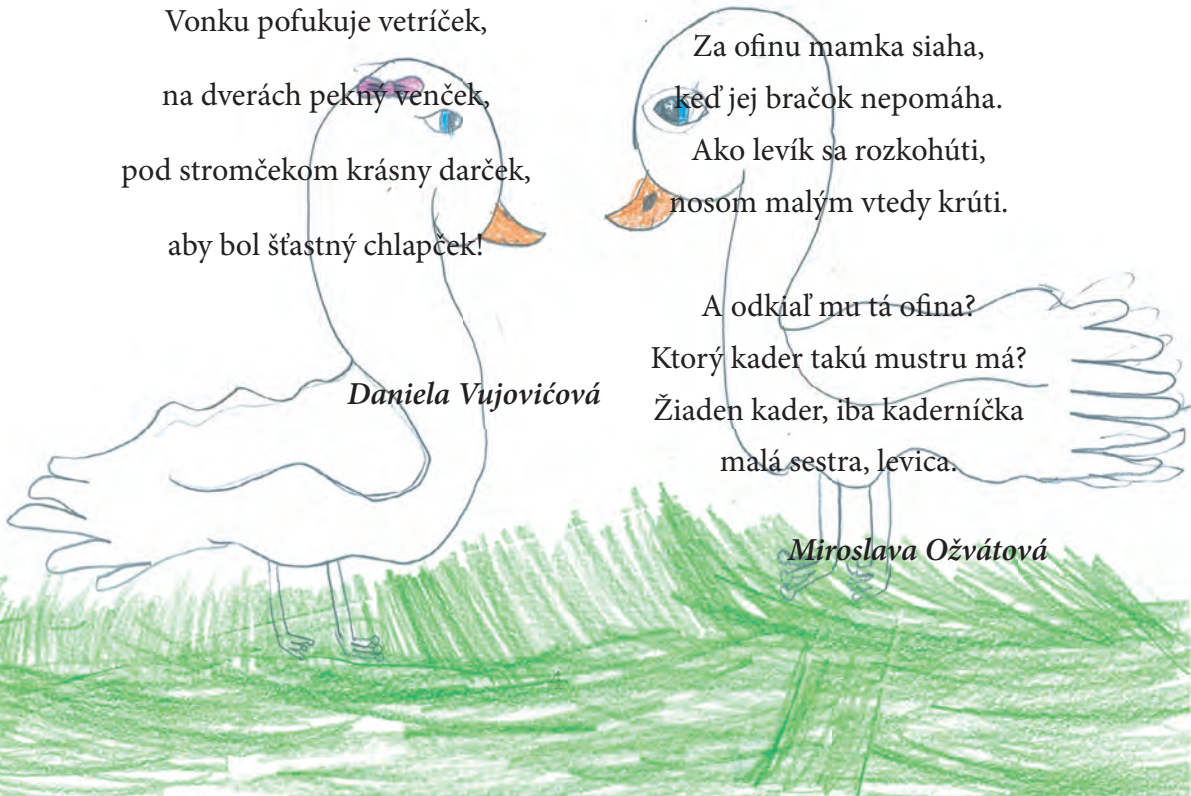 Vonku pofukuje vetríček,
na dverách pekný venček,
pod stromčekom krásny darček,
aby bol šťastný chlapček!
Daniela Vujovićová
Za ofinu mamka siaha,
keď jej bračok nepomáha.
Ako levík sa rozkohúti,
nosom malým vtedy krúti.
A odkiaľ mu tá ofina?
Ktorý kader takú mustru má?
Žiaden kader, iba kaderníčka
malá sestra, levica.
Miroslava Ožvátová